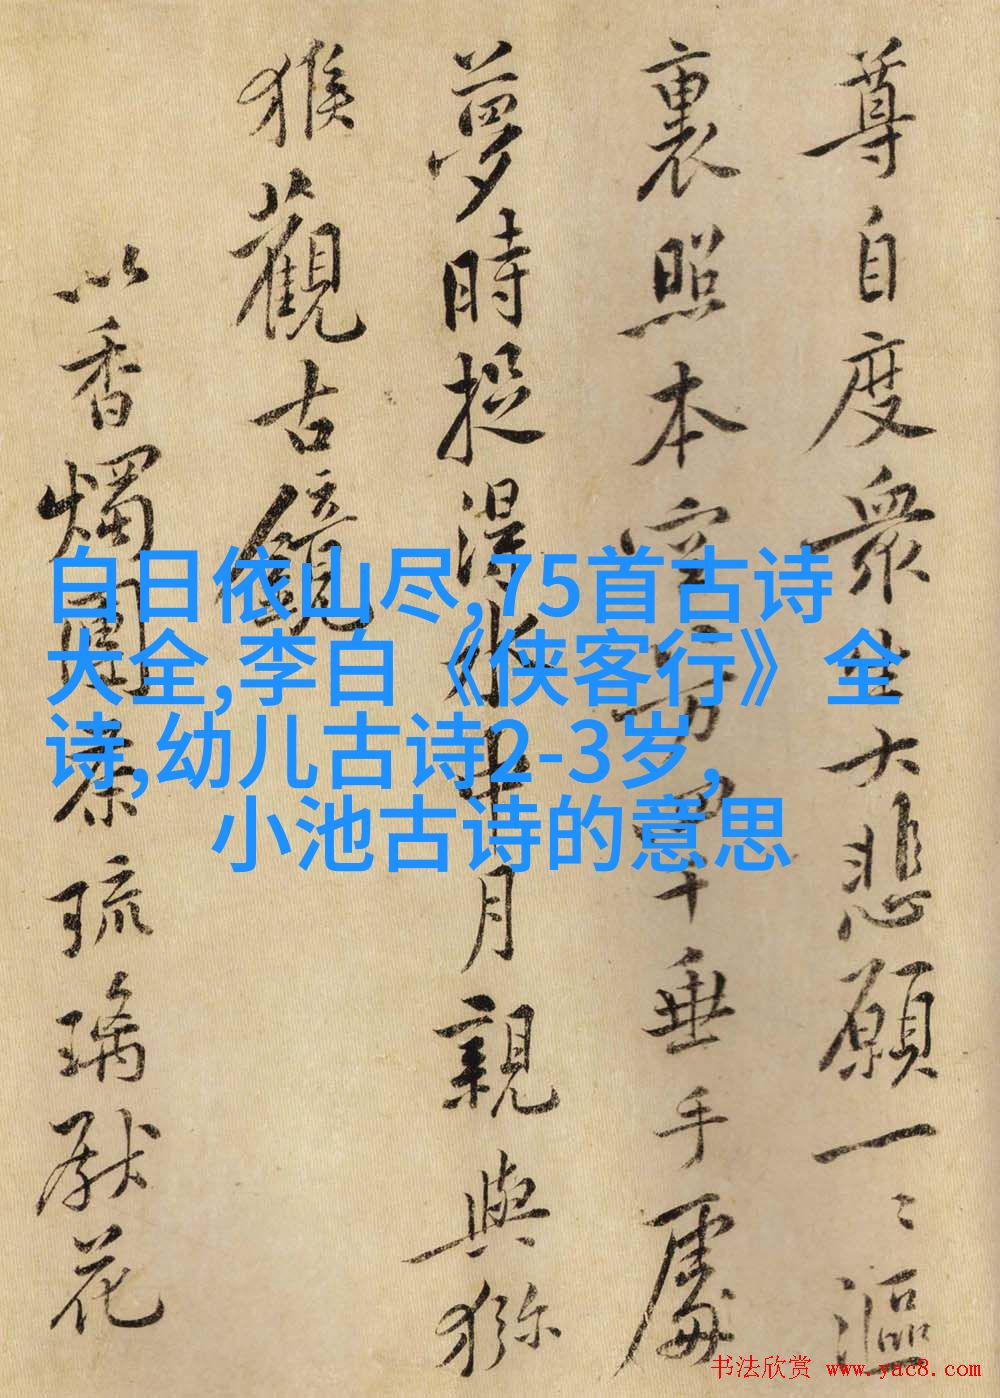 尊自度衆生大悲願一〻漚
裏照本空八万四千垂手處
夢時捉得水中月親與獼
猴觀古鏡
以香燭團茶琉璃獻花
白日依山尽,75首古诗
大全,李白《侠客行》全
诗,幼儿古诗2-3岁,
小池古诗的意思
书法欣赏 www.yac8.com